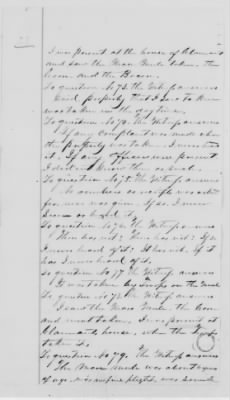 I was present at the house of Claimant
and saw the Mare Mule taken, the
Corn and the Bacon.
To question No 73. the Witness answers
property that I saw
was taken in the daytime.
To question No 74. the Witness answers
If any complaint was made when
the property was taken I never
it. If any Officers were present
I do not know
To question No 75. the Witness answers
No vouchers or receipts were
for, nor was given. If so I never
knew or heard it.
To question No 76. the Witness answers
They have not? They has not? If so
I never heard of it. It has not. If it
has I never heard of it.
To question No 77. the Witness answers
It was taken by troops on the
To question No 78. the Witness answers
I saw the Mare Mule, the Corn
and meat taken. I was present at
Claimants house, when the Troops
taken it.
To question No 79. the Witness answers
The Mare Mule was about years
of age, was